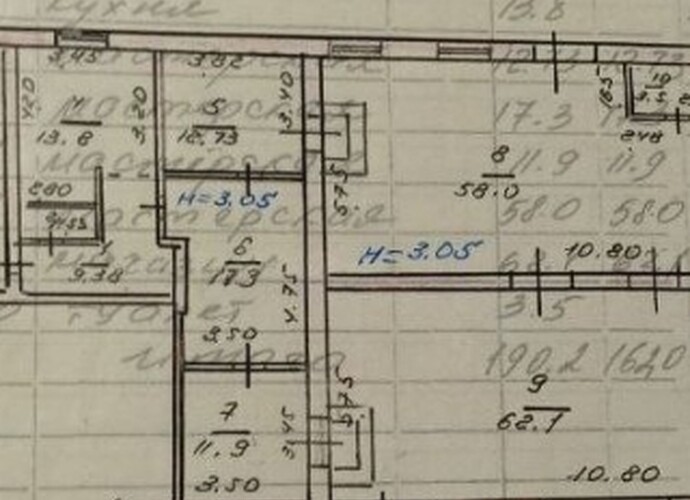 кухня 13.8
3.45 3.82 12.73 12.73
4.20 3.20 5 3.40 1.65 19
13.8 12.73 мастерская 17.3 3.5
2.48
мастерская 8 11.9 11.9
2.80 H=3.05 5.75 58.0 58.0 58.0
мастерская
1 6 H=3.05 10.80
9.38 17.3
4.75
туалет 3.5
3.50 итого 190.2 162.0
7 5.75 9
11.9 3.45 62.1
3.50 10.80